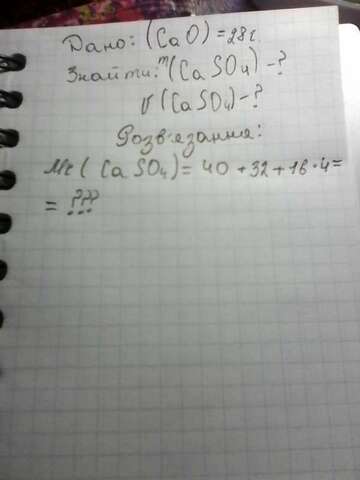 Дано: (CaO) = 28г.
Знайти: m(CaSO4) - ?
υ(CaSO4) - ?
Розв'язання:
Mr(CaSO4) = 40 + 32 + 16·4 =
= ???